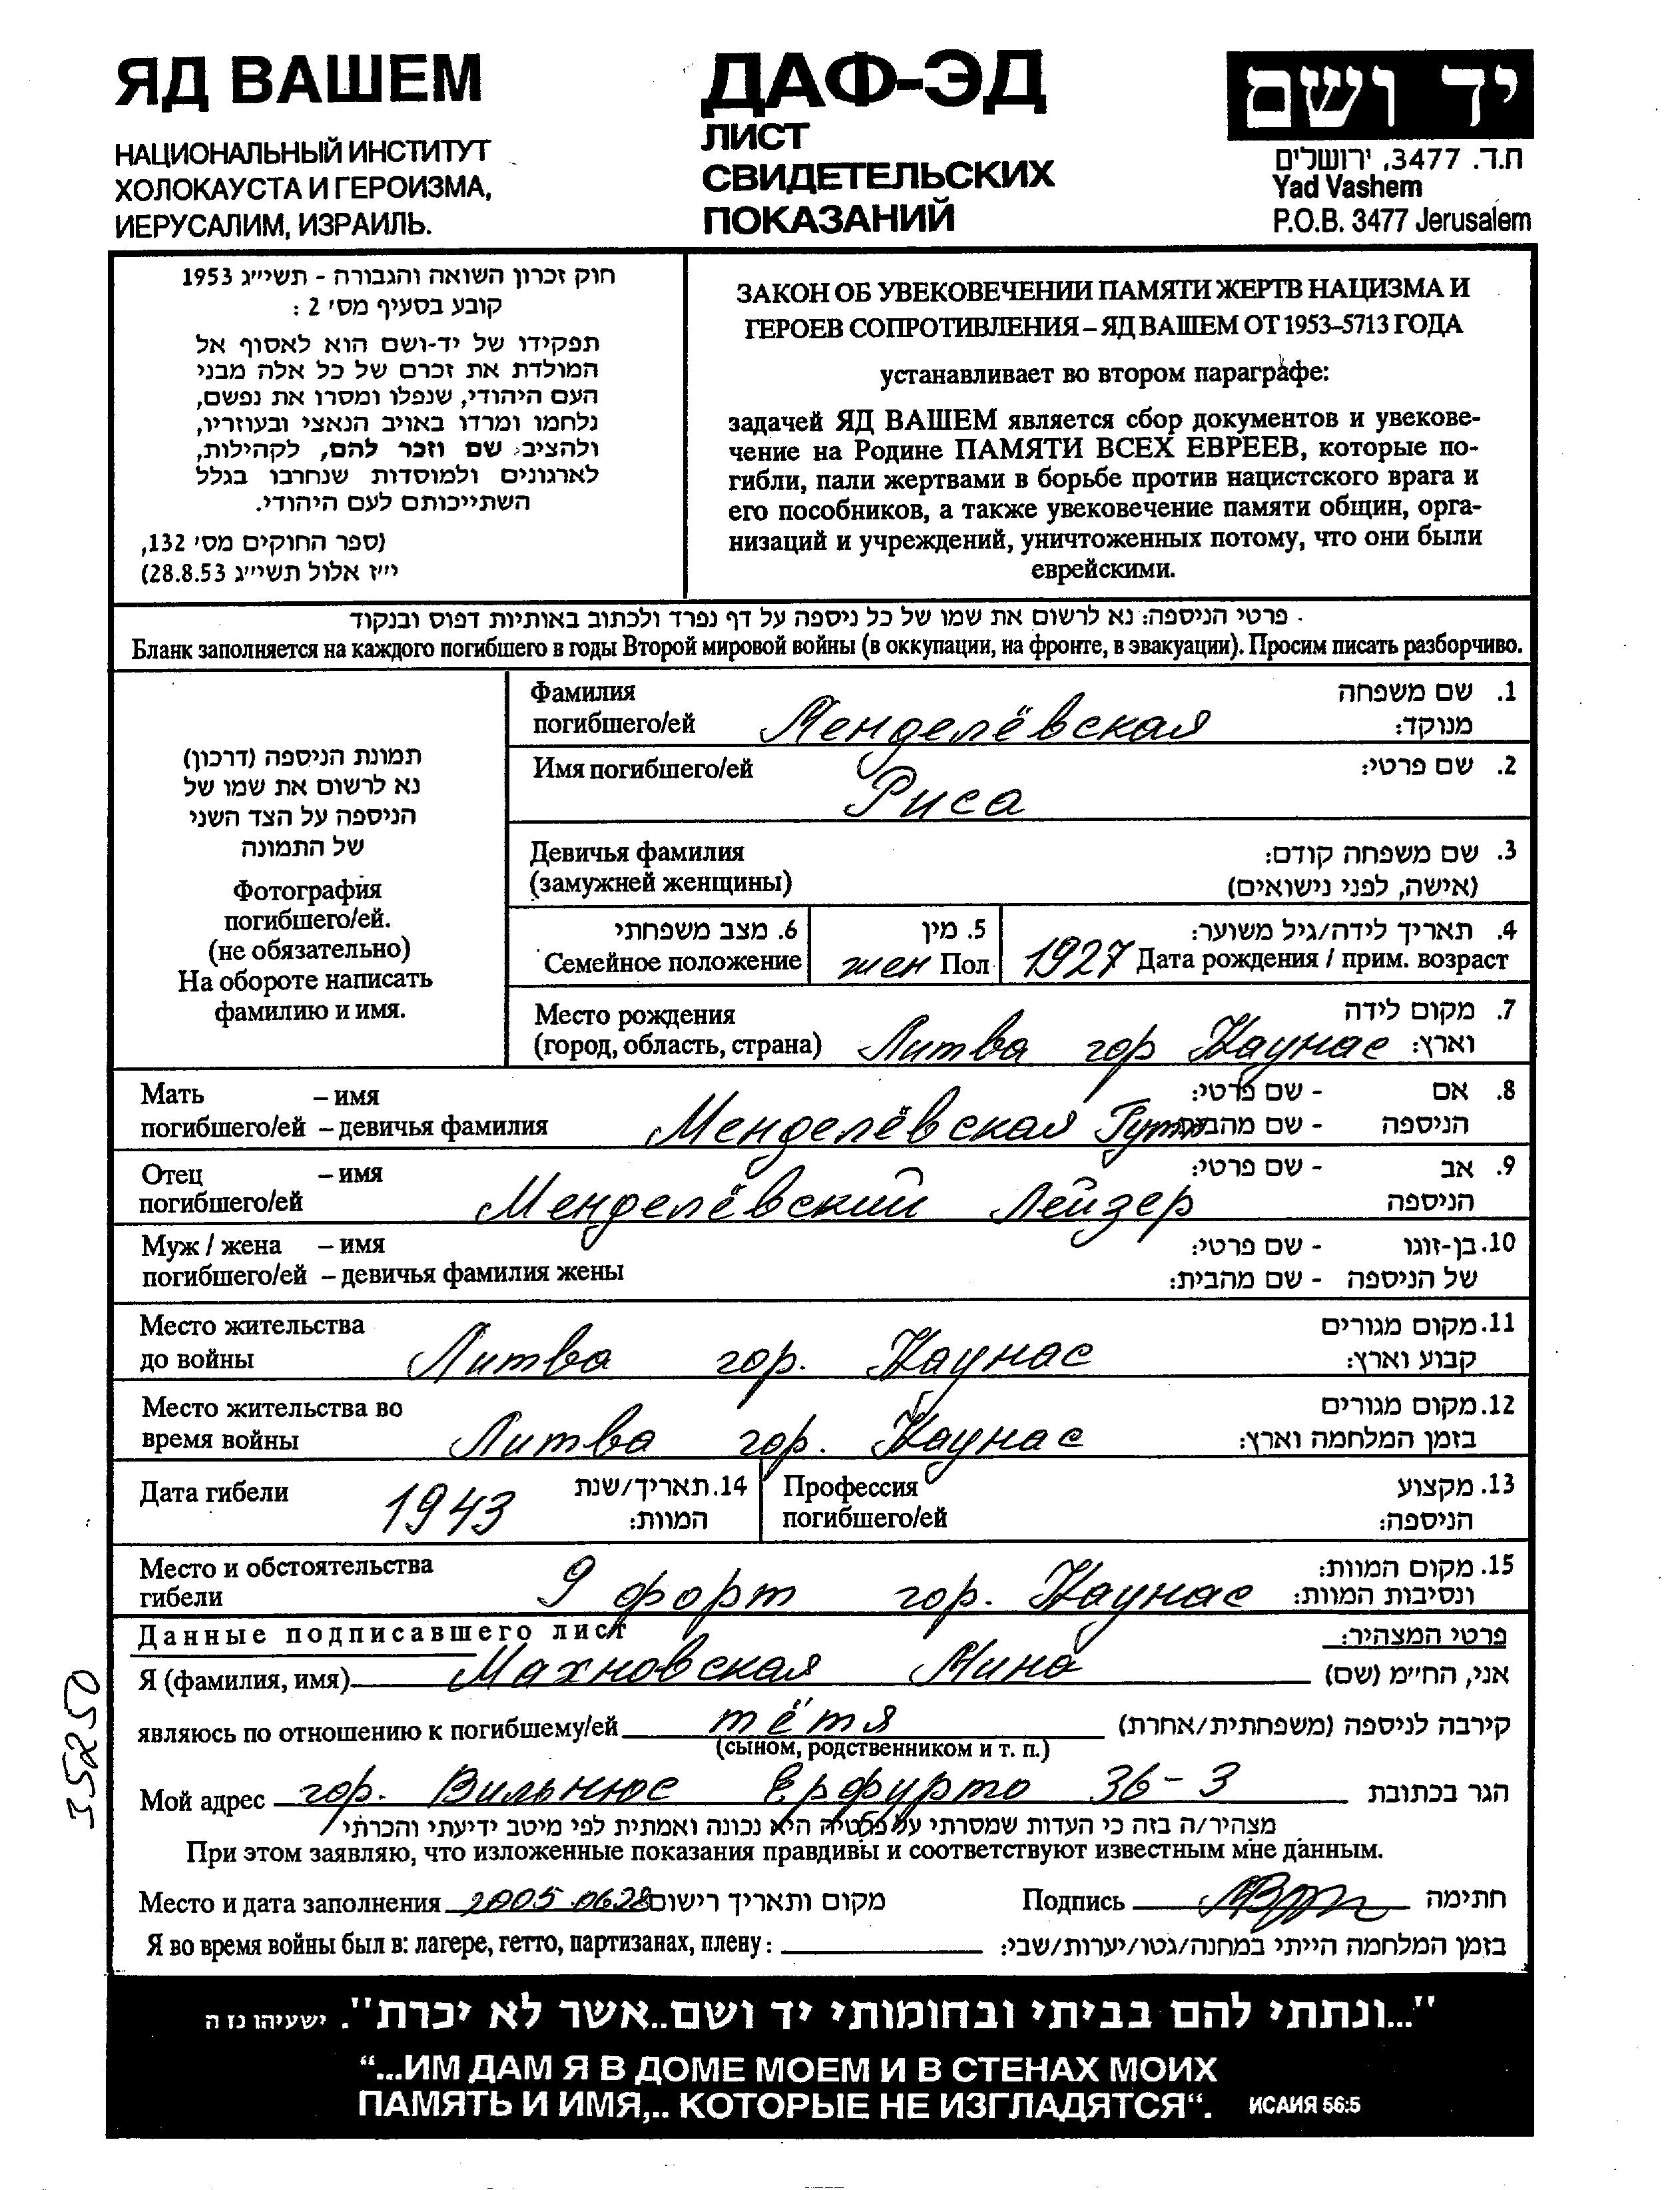 ЯД ВАШЕМ
НАЦИОНАЛЬНЫЙ ИНСТИТУТ
ХОЛОКАУСТА И ГЕРОИЗМА,
ИЕРУСАЛИМ, ИЗРАИЛЬ.
ДАФ-ЭД
ЛИСТ
СВИДЕТЕЛЬСКИХ
ПОКАЗАНИЙ
יד ושם
ת.ד. 3477, ירושלים
Yad Vashem
P.O.B. 3477 Jerusalem
חוק זכרון השואה והגבורה - תשי״ג 1953
קובע בסעיף מס׳ 2 :
תפקידו של יד-ושם הוא לאסוף אל
המולדת את זכרם של כל אלה מבני
העם היהודי, שנפלו ומסרו את נפשם,
נלחמו ומרדו באויב הנאצי ובעוזריו,
ולהציב שם וזכר להם, לקהילות,
לארגונים ולמוסדות שנחרבו בגלל
השתייכותם לעם היהודי.
(ספר החוקים מס׳ 132,
י״ז אלול תשי״ג 28.8.53)
ЗАКОН ОБ УВЕКОВЕЧЕНИИ ПАМЯТИ ЖЕРТВ НАЦИЗМА И
ГЕРОЕВ СОПРОТИВЛЕНИЯ – ЯД ВАШЕМ ОТ 1953–5713 ГОДА
устанавливает во втором параграфе:
задачей ЯД ВАШЕМ является сбор документов и увекове-
чение на Родине ПАМЯТИ ВСЕХ ЕВРЕЕВ, которые по-
гибли, пали жертвами в борьбе против нацистского врага и
его пособников, а также увековечение памяти общин, орга-
низаций и учреждений, уничтоженных потому, что они были
еврейскими.
פרטי הניספה: נא לרשום את שמו של כל ניספה על דף נפרד ולכתוב באותיות דפוס ובנקוד
Бланк заполняется на каждого погибшего в годы Второй мировой войны (в оккупации, на фронте, в эвакуации). Просим писать разборчиво.
תמונת הניספה (דרכון)
נא לרשום את שמו של
הניספה על הצד השני
של התמונה
Фотография
погибшего/ей.
(не обязательно)
На обороте написать
фамилию и имя.
Фамилия 1. שם משפחה
погибшего/ей Менделёвская מנוקד:
Имя погибшего/ей 2. שם פרטי:
Риса
Девичья фамилия 3. שם משפחה קודם:
(замужней женщины) (אישה, לפני נישואים)
6. מצב משפחתי 5. מין 4. תאריך לידה/גיל משוער:
Семейное положение жен Пол 1927 Дата рождения / прим. возраст
Место рождения 7. מקום לידה
(город, область, страна) Литва гор Каунас וארץ:
Мать – имя 8. אם - שם פרטי:
погибшего/ей – девичья фамилия Менделёвская הניספה - שם
Отец – имя 9. אב - שם פרטי:
погибшего/ей Менделёвский Лейзер הניספה
Муж / жена – имя 10. בן-זוגו - שם פרטי:
погибшего/ей – девичья фамилия жены של הניספה - שם מהבית:
Место жительства 11. מקום מגורים
до войны Литва гор. Каунас קבוע וארץ:
Место жительства во 12. מקום מגורים
время войны Литва гор. Каунас בזמן המלחמה וארץ:
Дата гибели 1943 14. תאריך/שנת
המוות:
Профессия 13. מקצוע
погибшего/ей הניספה:
Место и обстоятельства 15. מקום המוות:
гибели 9 форт гор. Каунас ונסיבות המוות:
Данные подписавшего лист פרטי המצהיר:
Я (фамилия, имя) Махновская Мина אני, הח״מ (שם)
являюсь по отношению к погибшему/ей тётя קירבה לניספה (משפחתית/אחרת)
(сыном, родственником и т. п.)
Мой адрес гор. Вильнюс Ерфурто 36-3 הגר בכתובת
מצהיר/ה בזה כי העדות שמסרתי על פרטיה היא נכונה ואמתית לפי מיטב ידיעתי והכרתי
При этом заявляю, что изложенные показания правдивы и соответствуют известным мне данным.
Место и дата заполнения 2005.06.28 מקום ותאריך רישום Подпись חתימה
Я во время войны был в: лагере, гетто, партизанах, плену: בזמן המלחמה הייתי במחנה/גטו/יערות/שבי:
35250
"...ונתתי להם בביתי ובחומותי יד ושם..אשר לא יכרת". ישעיהו נז ה
“...ИМ ДАМ Я В ДОМЕ МОЕМ И В СТЕНАХ МОИХ
ПАМЯТЬ И ИМЯ,.. КОТОРЫЕ НЕ ИЗГЛАДЯТСЯ“. ИСАИЯ 56:5